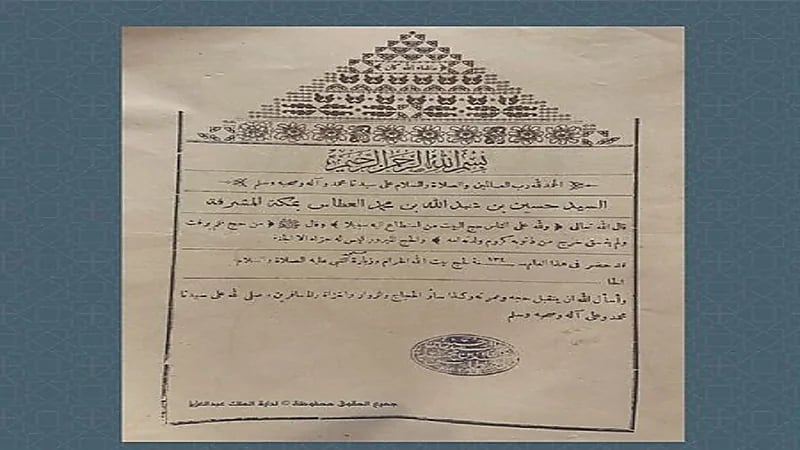 ما شاء الله كان
بسم الله الرحمن الرحيم
الحمد لله رب العالمين والصلاة والسلام على سيدنا محمد وآله وصحبه وسلم
السيد حسين بن عبد الله بن محمد العطاس بمكة المشرفة
قال الله تعالى ﴿ ولله على الناس حج البيت من استطاع إليه سبيلا ﴾ وقال ﷺ ﴿ من حج فلم يرفث
ولم يفسق خرج من ذنوبه كيوم ولدته أمه ﴾ والحج المبرور ليس له جزاء إلا الجنة
قد حضر في هذا العام ١٣٤ لحج بيت الله الحرام وزيارة النبي عليه الصلاة والسلام
وأسأل الله ان يتقبل حجه وعمرته وكذا سائر الحجاج والزوار والغزاة والمسافرين وصلى الله على سيدنا
محمد وعلى آله وصحبه وسلم
جميع الحقوق محفوظة © لدارة الملك عبدالعزيز